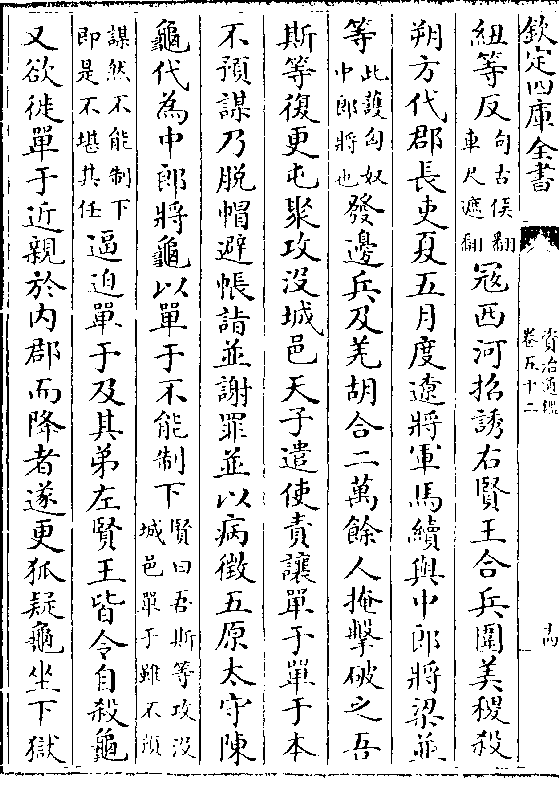 欽定四庫全書
資治通鑑
卷五十二
十四
紐等反句古侯翻
車尺遮翻寇西河招誘右賢王合兵圍美稷殺
朔方代郡長吏夏五月度遼將軍馬續與中郎將梁並
等此護匈奴
中郎將也發邊兵及羌胡合二萬餘人掩擊破之吾
斯等復更屯聚攻沒城邑天子遣使責讓單于單于本
不預謀乃脫帽避帳詣並謝罪並以病徵五原太守陳
龜代為中郎將龜以單于不能制下賢曰吾斯等攻沒
城邑單于雖不預
謀然不能制下
即是不堪其任逼迫單于及其弟左賢王皆令自殺龜
又欲徙單于近親於內郡而降者遂更狐疑龜坐下獄